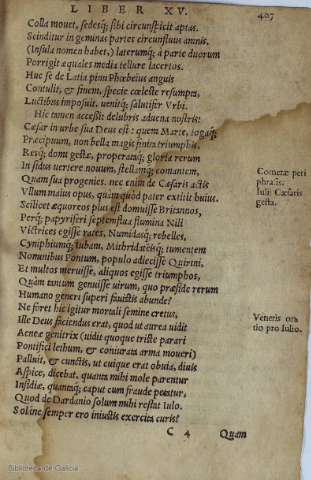 LIBER XV.
407
Colla mouet, sedesq; sibi circunspicit aptas.
Scinditur in geminas partes circunfluus amnis,
(Insula nomen habet,) laterumq; à parte duorum
Porrigit æquales media tellure lacertos.
Huc se de Latia pinu Phœbeius anguis
Contulit, & finem, specie cœleste resumpta,
Luctibus imposuit. uenitq; salutifer Vrbi.
Hic tamen accessit delubris aduena nostris:
Cæsar in urbe sua Deus est: quem Marte, togaq;
Præcipuum, non bella magis finita triumphis,
Resq; domi gestæ, properataq; gloria rerum
In sidus uertere nouum, stellamq; comantem,
Quàm sua progenies. nec enim de Cæsaris actis
Vllum maius opus, quàm quòd pater extitit huius.
Scilicet æquoreos plus est domuisse Britannos,
Perq; papyriferi septemflua flumina Nili
Victrices egisse rates, Numidasq; rebelles,
Cyniphiumq; Iubam, Mithridateisq; tumentem
Nominibus Pontum, populo adiecisse Quirini,
Et multos meruisse, aliquos egisse triumphos,
Quàm tantum genuisse uirum, quo præside rerum
Humano generi superi fauistis abunde?
Ne foret hic igitur mortali semine cretus,
Ille Deus faciendus erat, quod ut aurea uidit
Aeneæ genitrix (uidit quoque triste parari
Pontifici lethum, & coniurata arma moueri)
Palluit, & cunctis, ut cuique erat obuia, diuis
Aspice, dicebat, quanta mihi mole parentur
Insidiæ, quantaq; caput cum fraude petatur,
Quod de Dardanio solum mihi restat Iulo.
Solúne semper ero iniustis exercita curis?
Cometæ peri
phrasis.
Iulii Cæsaris
gesta.
Veneris ora
tio pro Iulio.
C 4 Quam
Biblioteca de Galicia